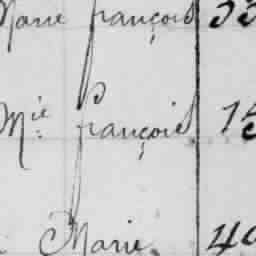 Marie françois 33
Mie françois 15
Marie 40